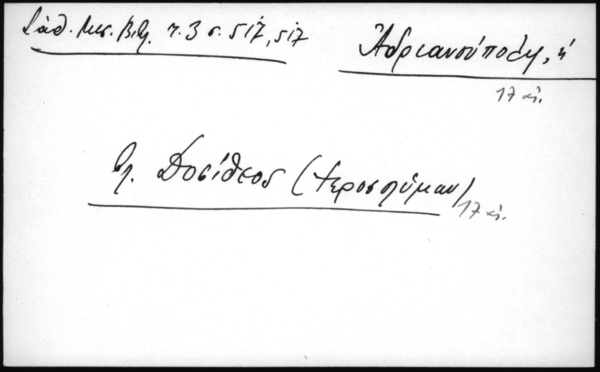 Σάθ. Μεσ. Βιβ. τ. 3 σ. 517, 517
Ἀδριανούπολη, ἡ
17 αἰ.
Βλ. Δοσίθεος (Ἱεροσολύμων)
17 αἰ.